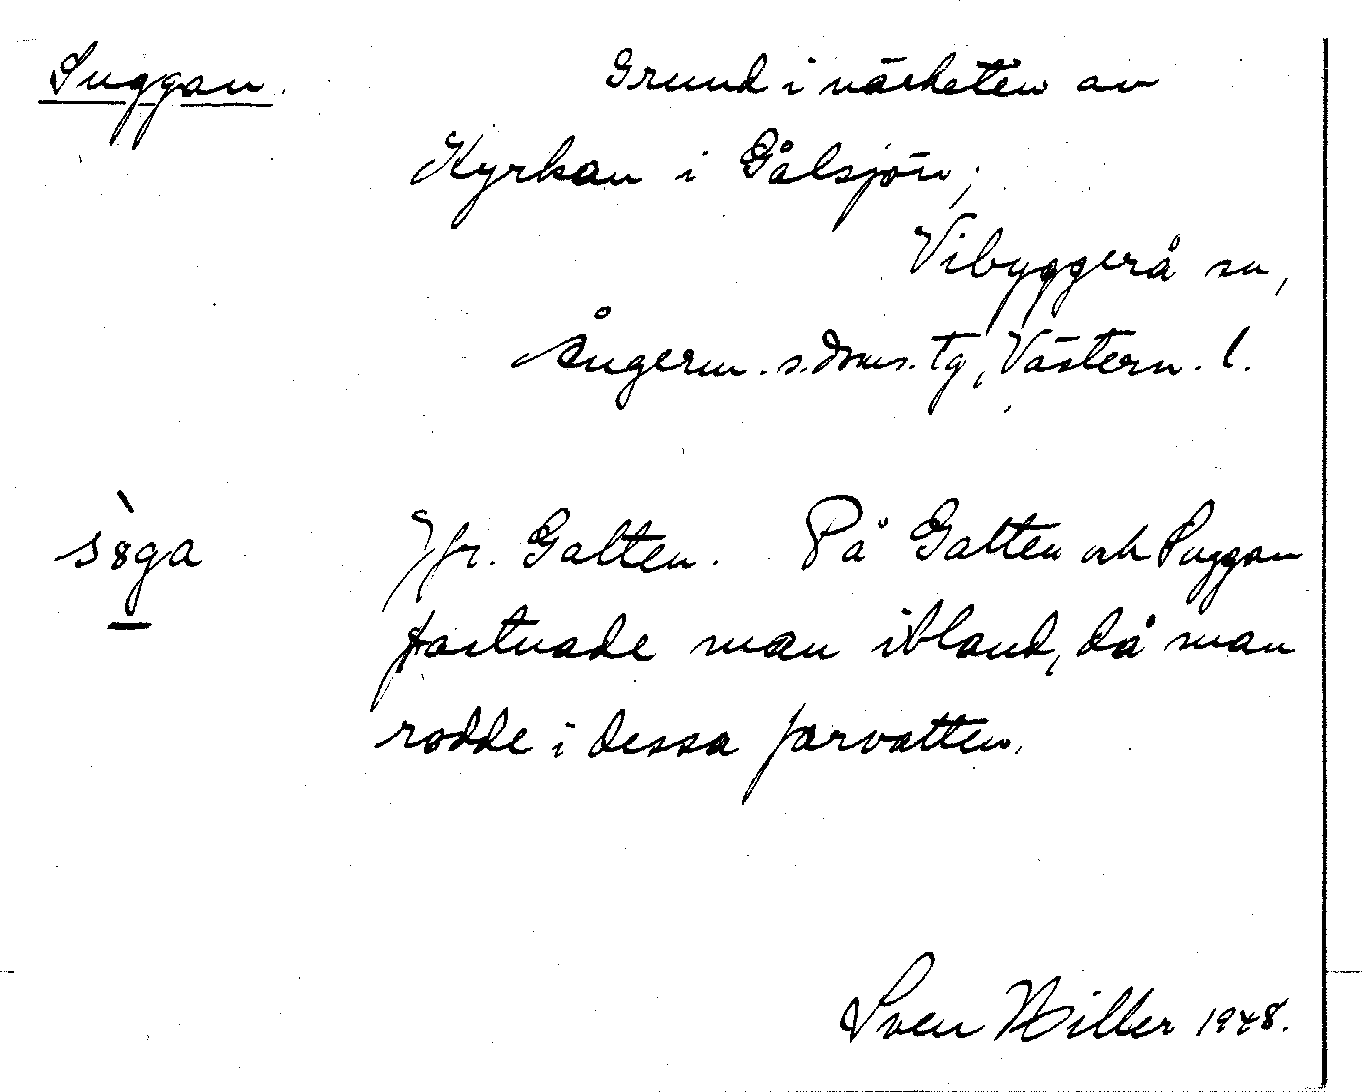 Suggan. Grund i närheten av
Kyrkan i Gålsjön,
Vibyggerå sn,
Ångerm. s. doms. tg, Västern. l.
sò̀ga Jfr. Galten. På Galten och Suggan
fastnade man ibland, då man
rodde i dessa farvatten.
Sven Hiller 1948.